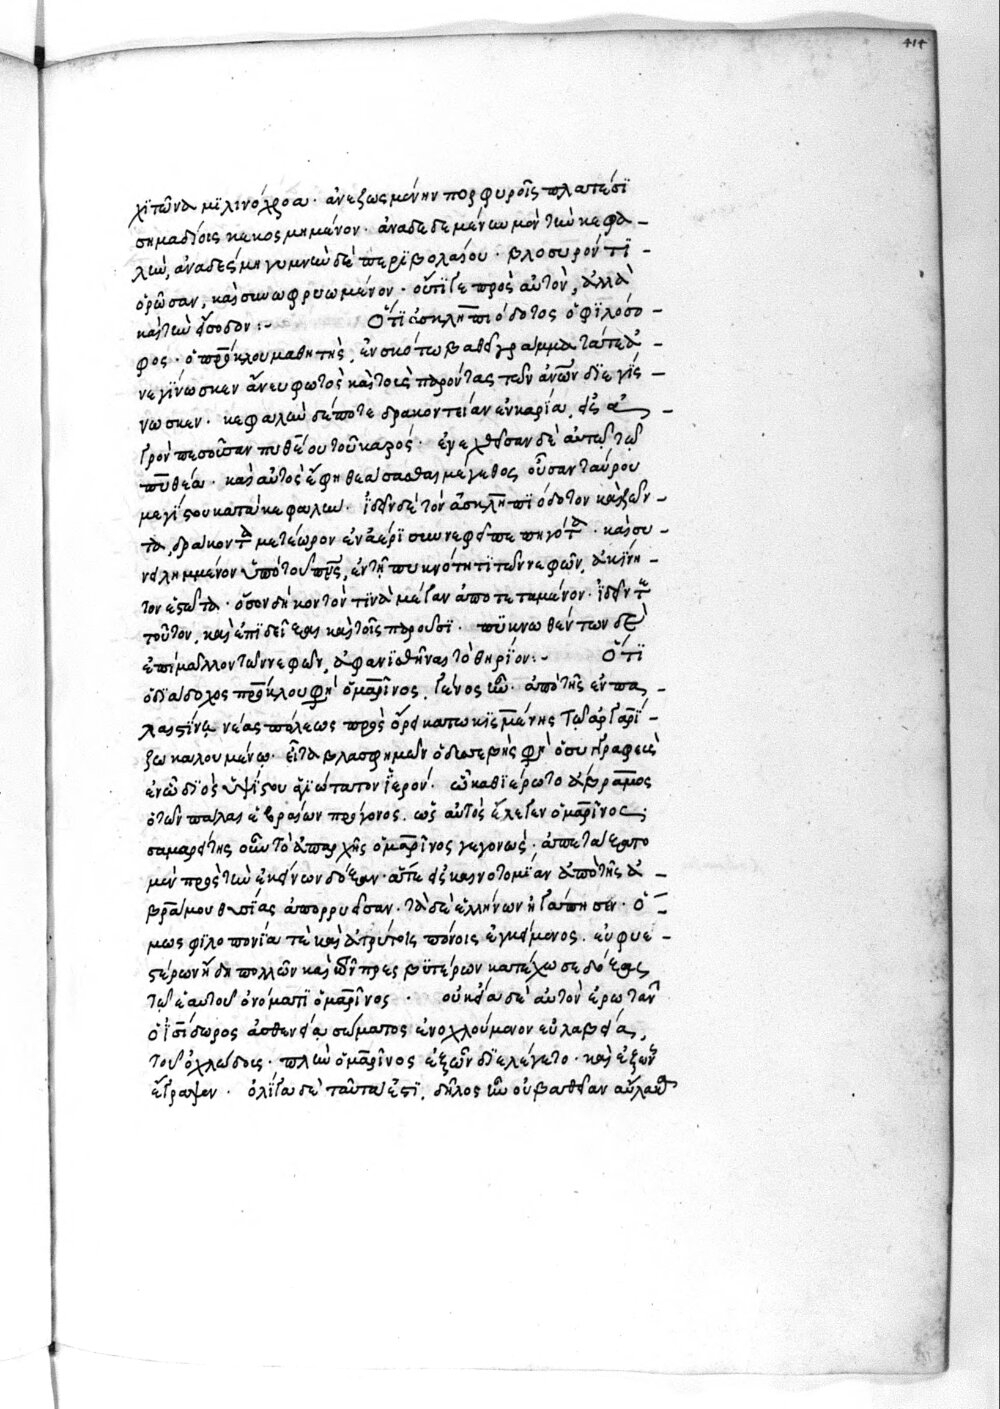 414
χϊτῶνα μϊλινόχροα· ἀνεζωσμένην πορφυροῖς πλατέσϊ
σημαδίοις κεκοσμημένον· ἀναδεδεμένων μὲν τὴν κεφα-
λὴν, ἀναδέσμη γυμνὴν δὲ περϊβολαίου· βλοσυρόν τϊ-
ὁρῶσαν, καὶ συνωφρυωμένον· οὔτϊ γε πρὸς αὐτὸν, ἀλλὰ
κατὰ τὴν εἴσοδον:- Ὅτϊ ἀσκληπιόδοτος ὁ φϊλόσο-
φος· ὁ πρόκλου μαθητὴς, ἐν σκότω βαθεῖ γράμματά τε ἀ-
νεγίνωσκεν ἄνευ φωτὸς καὶ τοὺς παρόντας τῶν ἀνων̄ δϊεγίν-
νωσκεν· κεφαλὴν δέ ποτε δρακοντείαν ἐν καρία, εἰς ἀ-
γρὸν πεσοῦσαν πυθέου τοῦ καρός· ἐνεχθεῖσαν δὲ αὐτῶ τῶ
πυθέα· καὶ αὐτὸς ἔφη θεάσασθαι μέγεθος, οὖσαν ταύρου
μεγίστου κατὰ κεφαλὴν· ἰδεῖν δὲ τὸν ἀσκληπϊόδοτον καὶ ζῶν-
τα δράκοντα μετέωρον ἐν ἀέρϊ συννεφεῖ πεπηγότα· καὶ συ-
νειλημμένον ὑπὸ τοῦ πνς, ἐν τῆ πυκνότητϊ τῶν νεφῶν, ἀκίνη-
τον ἑστῶτα· ὅσον δὴ κοντόν τϊνα μέγαν ἀποτεταμένον· ἰδεῖν τε
τοῦτον, καὶ ἐπϊδεῖξαι καὶ τοῖς παροῦσϊ· πϋκνωθέντων δὲ
ἐπιμᾶλλον τῶν νεφῶν, ἀφανϊσθῆναι τὸ θηρίον:- Ὅτϊ
ὁ διάδοχος πρόκλου φη ὁ μαρῖνος, γένος ἦν· ἀπὸ τῆς ἐν πα-
λαιστίνη νέας πόλεως πρὸς ὄρει κατωκϊσμένης τῶ ἀργαρϊ-
ζω καλουμένω· εἶτα βλασφημῶν ὁ δυσσεβὴς φη ὁ συγγραφεὺς
ἐν ᾧ διὸς ὑψίστου ἁγϊώτατον ἱερόν· ᾧ καθϊέρωτο ἀβραμος
ὁ τῶν πάλαι ἑβραίων πρόγονος, ὡς αὐτὸς ἔλεγεν ὁ μαρῖνος·
σαμαρείτης οὖν τὸ ἀπαρχῆς ὁ μαρῖνος γεγονὼς· ἀπετάξατο
μὲν πρὸς τὴν ἐκείνων δόξαν· ἅτε εἰς καινοτομϊαν ἀπὸ τῆς ἀ-
βράμου θυσίας ἀπορρυεῖσαν· τὰ δὲ ἑλλήνων ἠγάπησεν· ὁ-
μως φϊλοπονία τὲ καὶ ἀτρύτοις πόνοις ἐγκείμενος, εὐφυε-
στέρων ἤδη πολλῶν καὶ τῶν πρεσβϋτέρων κατέχωσε δόξας
τῶ ἑαυτοῦ ὀνόματϊ ὁ μαρῖνος· οὐκ εἴα δὲ αὐτὸν ἐρωτᾶν
ὁ ἰσίδωρος ἀσθενεία σώματος ἐνοχλούμενον εὐλαβεία,
τοῦ ὀχλώδους· πλὴν ὁ μαρῖνος ἐξ ὧν δϊελέγετο· καὶ ἐξ ὧν
ἔγραψεν· ὀλίγα δὲ ταῦτά ἐστϊ, δῆλος ἦν οὐ βαθεῖαν αὔλακα